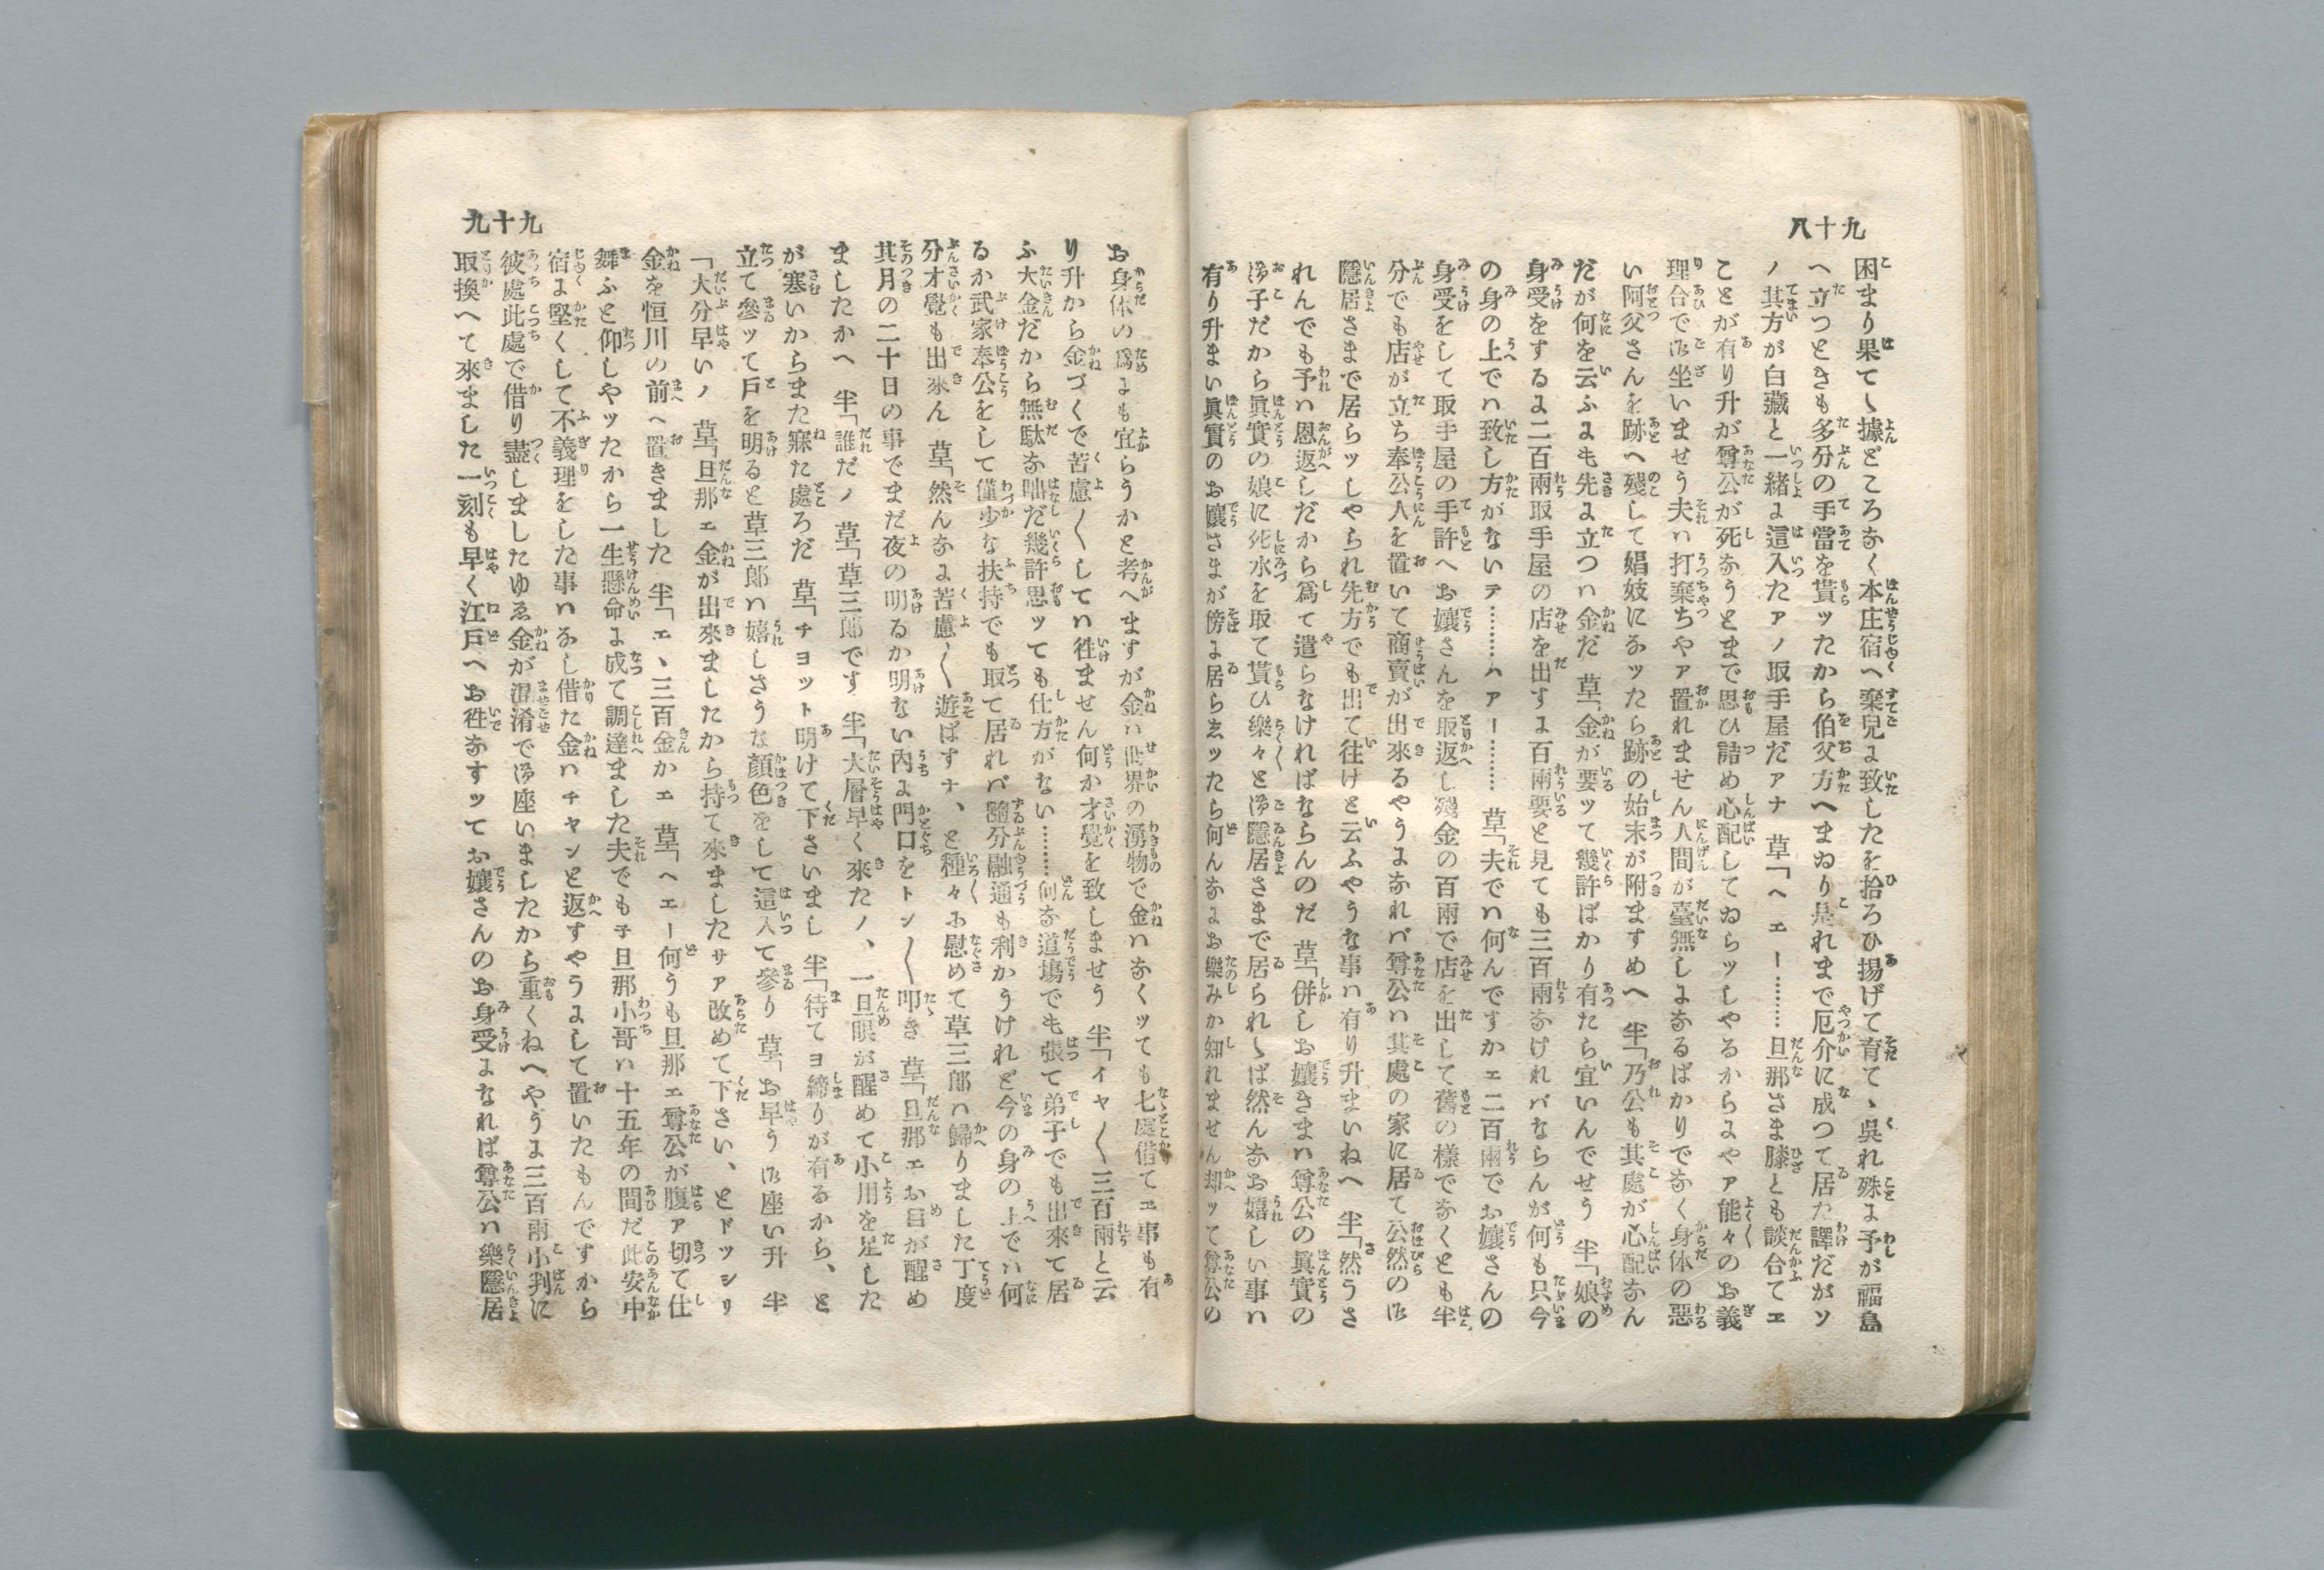 九十八
困まり果てゝ據どころなく本庄宿へ棄兒に致したを拾ろひ揚げて育てゝ呉れ殊に予が福島
へ立つときも多分の手當を貰ッたから伯父方へまゐり是れまで厄介に成つて居た譯だがソ
ノ其方が白藏と一緒に這入たアノ取手屋だアナ 草「ヘエー………旦那さま膝とも談合てエ
ことが有り升が尊公が死なうとまで思ひ詰め心配してゐらッしやるからにやア能々のお義
理合で御坐いませう夫ハ打棄ちやア置れません人間が臺無しになるばかりでなく身体の惡
い阿父さんを跡へ殘して娼妓になッたら跡の始末が附ますめへ 半「乃公も其處が心配なん
だが何を云ふにも先に立つハ金だ 草「金が要ッて幾許ばかり有たら宜いんでせう 半「娘の
身受をするに二百兩取手屋の店を出すに百兩要と見ても三百兩なければならんが何も只今
の身の上でハ致し方がないテ………ハアー……… 草「夫でハ何んですかエ二百兩でお孃さんの
身受をして取手屋の手許へお孃さんを取返し殘金の百兩で店を出して舊の樣でなくとも半
分でも店が立ち奉公人を置いて商賣が出來るやうになれバ尊公ハ其處の家に居て公然の御
隱居さまで居らッしやられ先方でも出て往けと云ふやうな事ハ有り升まいねへ 半「然うさ
れんでも予ハ恩返しだから爲て遣らなければならんのだ 草「併しお孃さまハ尊公の眞實の
御子だから眞實の娘に死水を取て貰ひ樂々と御隱居さまで居られゝば然んなお嬉しい事ハ
有り升まい眞實のお孃さまが傍に居らゑッたら何んなにお樂みか知れません却ッて尊公の
九十九
お身体の爲にも宜らうかと考へますが金ハ世界の湧物で金ハなくッても七處借てエ事も有
り升から金づくで苦慮〱してハ徃ません何か才覺を致しませう 半「イヤ〱三百兩と云
ふ大金だから無駄な咄だ幾許思ッても仕方がない………何な道塲でも張て弟子でも出來て居
るか武家奉公をして僅少な扶持でも取て居れバ隨分融通も利かうけれど今の身の上でハ何
分才覺も出來ん 草「然んなに苦慮〱遊ばすナ、と種々お慰めて草三郎ハ歸りました丁度
其月の二十日の事でまだ夜の明るか明ない內に門口をトン〱叩き 草「旦那エお目が醒め
ましたかへ 半「誰だノ 草「草三郎です 半「大層早く來たノ、一旦眼が醒めて小用を足した
が寒いからまた寐た處ろだ 草「チヨット明けて下さいまし 半「待てヨ締りが有るから、と
立て參ッて戸を明ると草三郎ハ嬉しさうな顏色をして這入て參り 草「お早う御座い升 半
「大分早いノ 草「旦那エ金が出來ましたから持て來ましたサア改めて下さい、とドッシリ
金を恒川の前へ置きました 半「エヽ三百金かエ 草「ヘエー何うも旦那エ尊公が腹ア切て仕
舞ふと仰しやッたから一生懸命に成て調達ました夫でもヲ旦那小哥ハ十五年の間だ此安中
宿に堅くして不義理をした事ハなし借た金ハチャンと返すやうにして置いたもんですから
彼處此處で借り盡しましたゆゑ金が混淆で御座いましたから重くねへやうに三百兩小判に
取換へて來ました一刻も早く江戸へお徃なすッてお孃さんのお身受になれば尊公ハ樂隱居